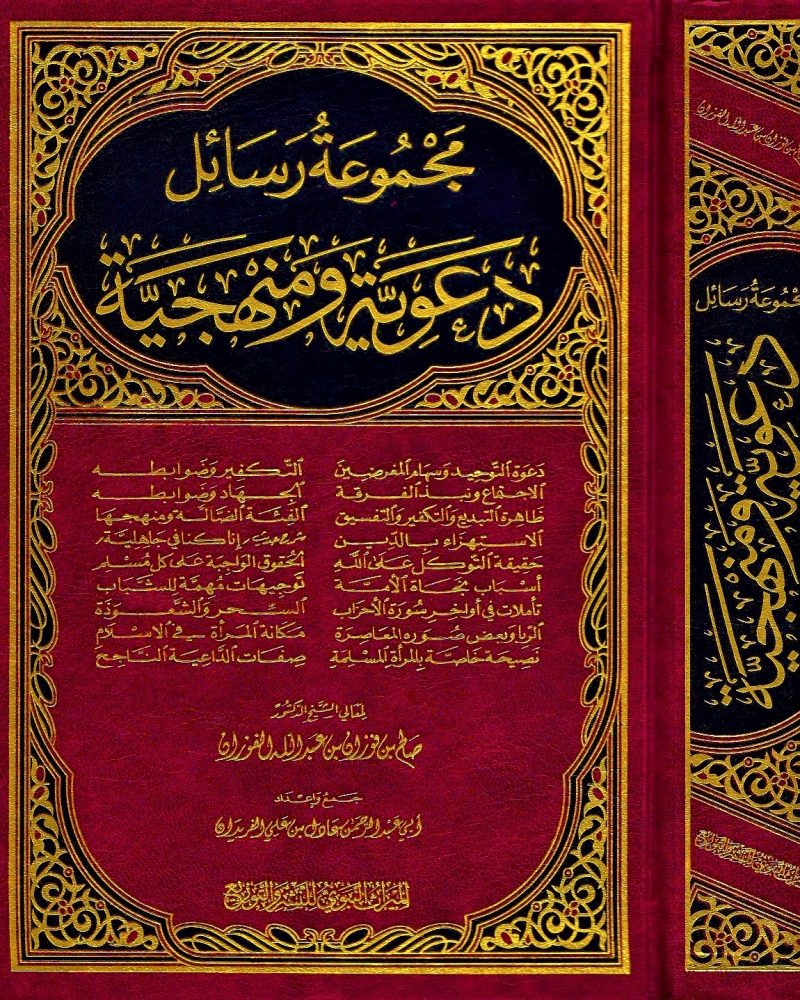 مَجْمُوعَةُ رَسَائِل
دَعَوِيَّة وَمَنْهَجِيَّة
دعوة التوحيد وسهام المغرضين
الاجتماع ونبذ الفرقة
ظاهرة التبديع والتكفير والتفسيق
الاستهزاء بالدين
حقيقة التوكل على الله
أسباب نجاة الأمة
تأملات في أواخر سورة الأحزاب
الربا وبعض صوره المعاصرة
نصيحة خاصة بالمرأة المسلمة
التكفير وضوابطه
الجهاد وضوابطه
الفئة الضالة ومنهجها
شرح حديث إنا كنا في جاهلية
الحقوق الواجبة على كل مسلم
توجيهات مهمة للشباب
السحر والشعوذة
مكانة المرأة في الإسلام
صفات الداعية الناجح
لمعالي الشيخ الدكتور
صالح بن فوزان بن عبد الله الفوزان
جمع وإعداد
أبي عبد الرحمن عادل بن علي الفريدان
الميراث النبوي للنشر والتوزيع
بن فوزان بن عبد الله الفوزان
مجموعة رسائل
دعوية ومنهجية